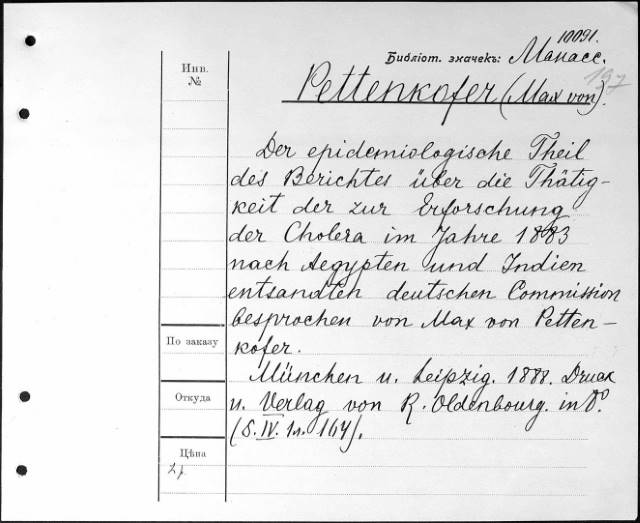 10091.
Библіот. значекъ: Манасс.
197
Инв.
№
Pettenkofer (Max von).
Der epidemiologische Theil
des Berichtes über die Thätig-
keit der zur Erforschung
der Cholera im Jahre 1883
nach Aegypten und Indien
entsandten deutschen Commission
besprochen von Max von Petten-
kofer.
По заказу
München u. Leipzig. 1888. Druck
Откуда
u. Verlag von R. Oldenbourg. in 8º.
(S. IV. 1л. 164).
Цѣна